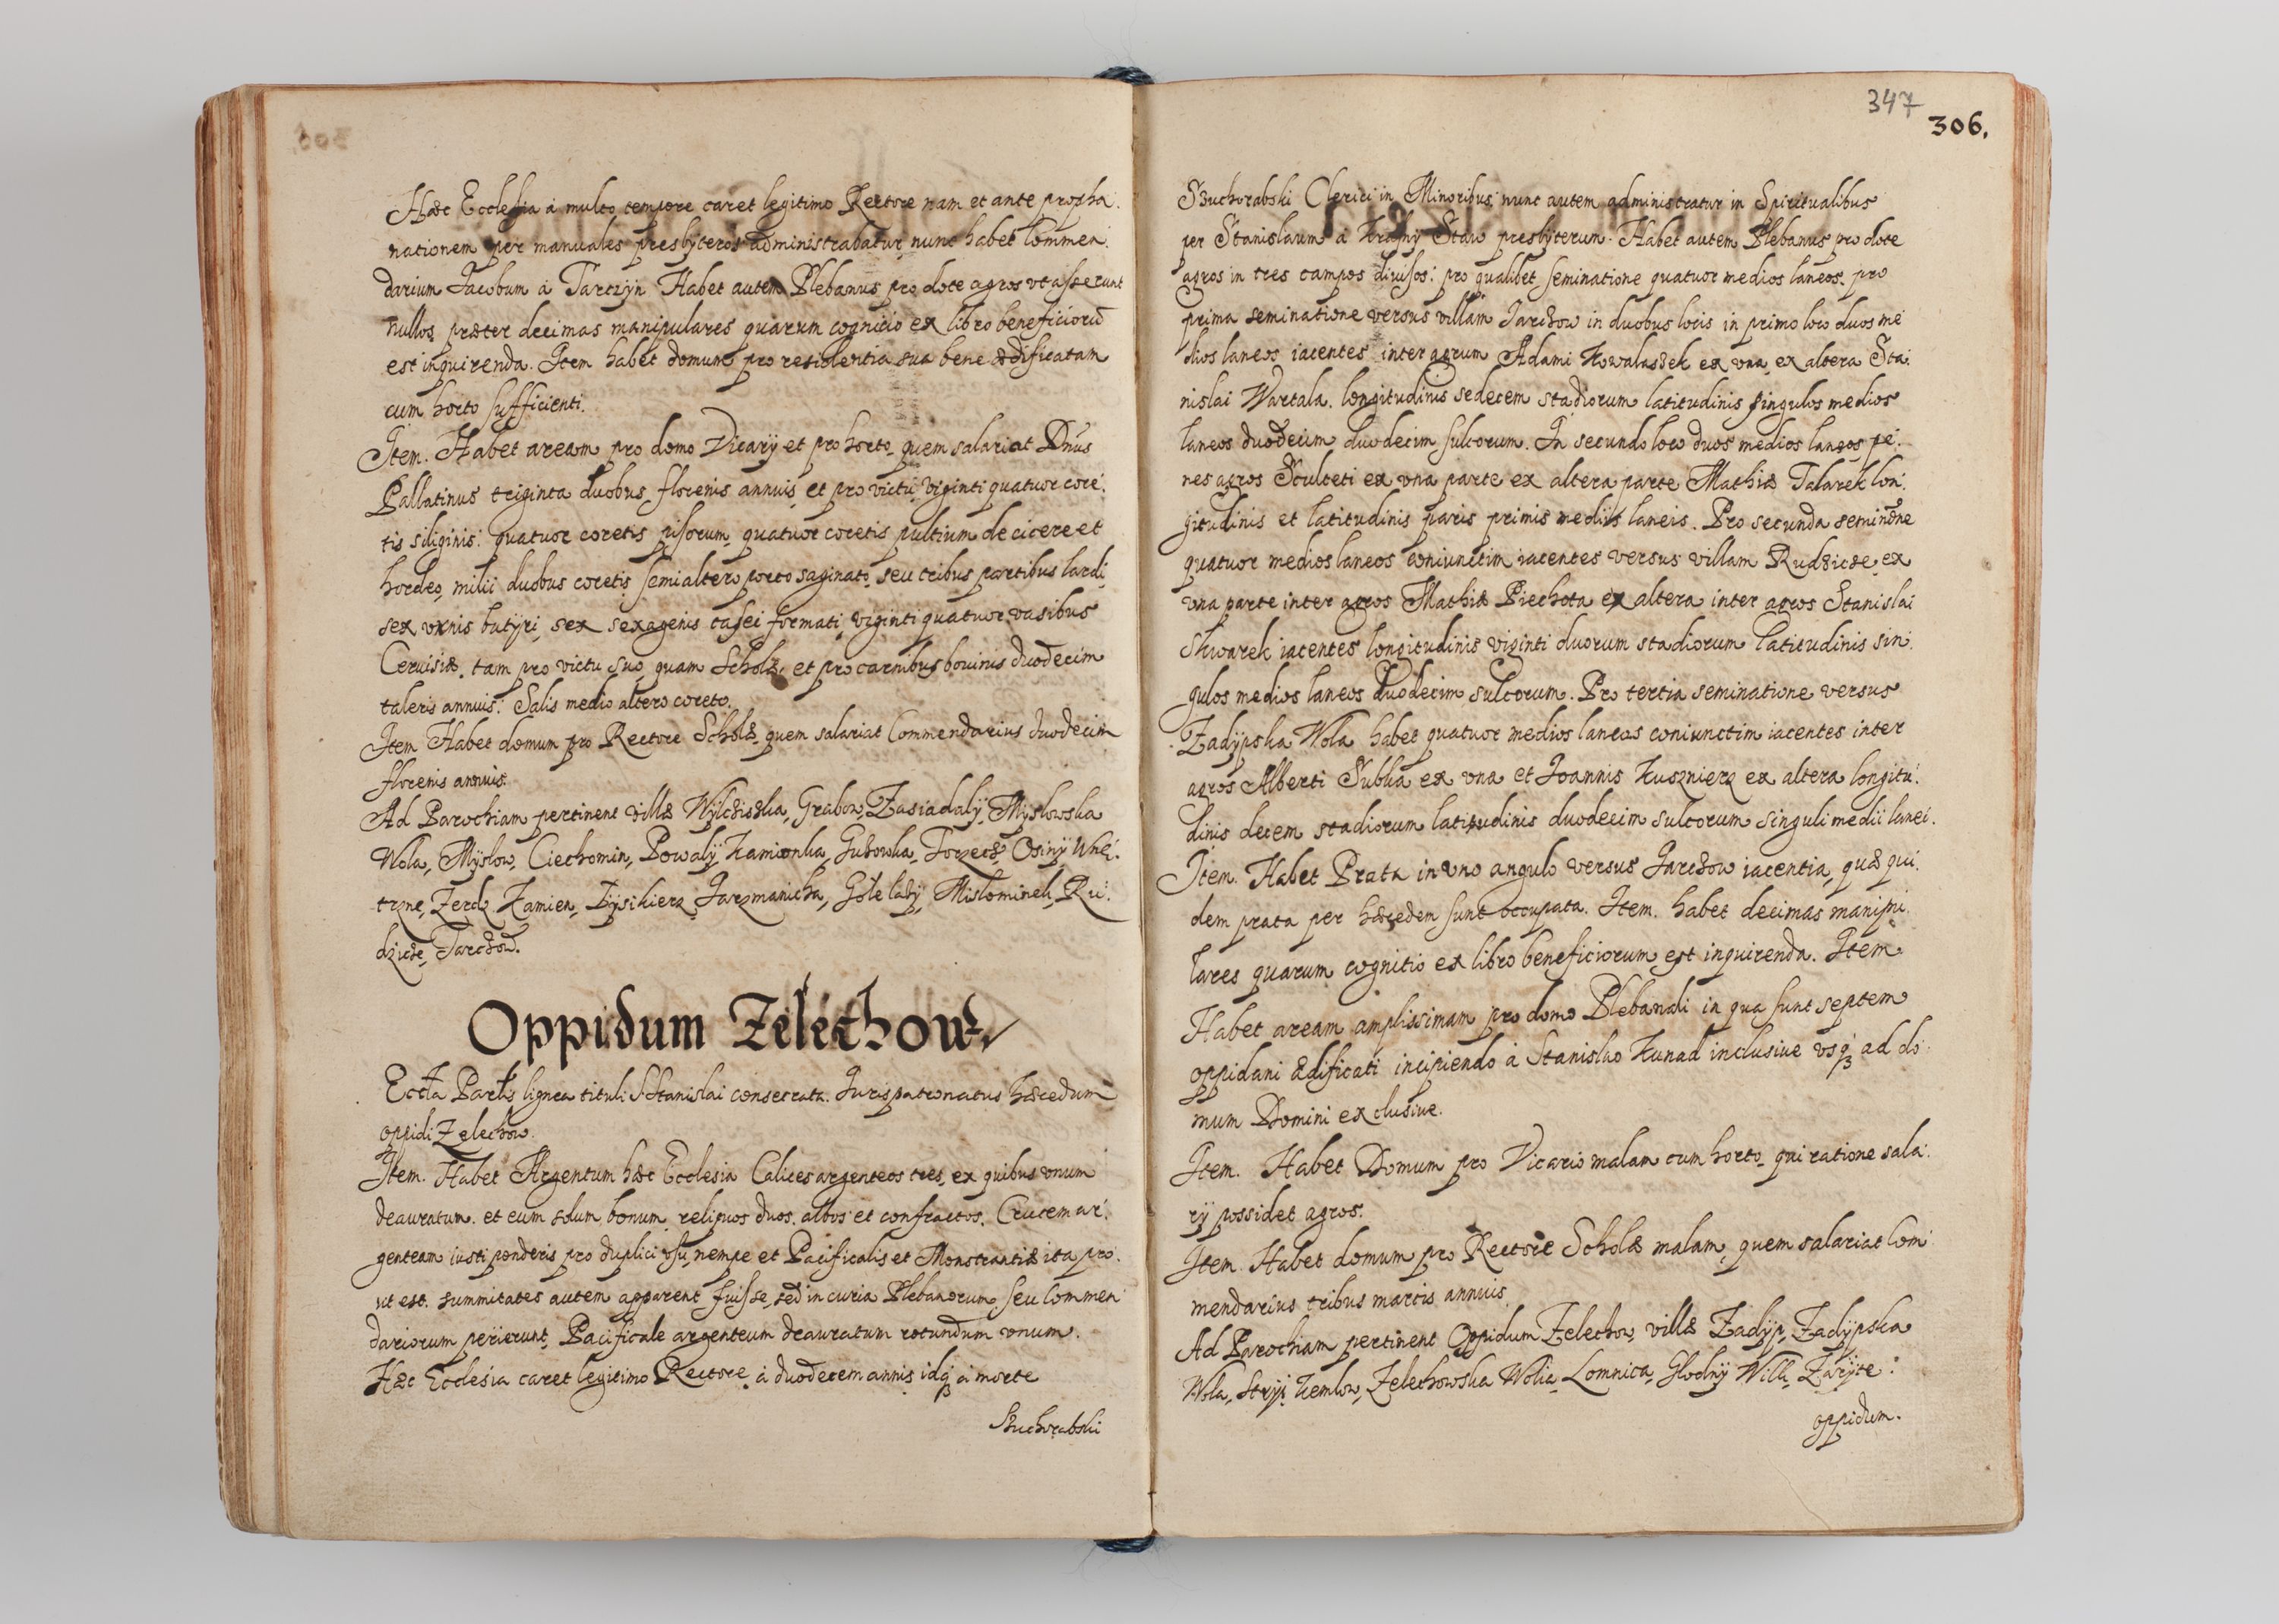 Hæc Ecclesia à multo tempore caret legitimo Rectore nam et ante propha:
nationem per manuales presbyteros administrabatur, nunc habet Commen:
darium Jacobum à Tarczyn Habet autem Plebanus pro dote agros vt asserunt
nullos præter decimas manipulares quarum cognitio ex libro beneficiorũ
est inquirenda. Item habet domum pro residentia sua bene ædificatam
cum horto sufficienti.
Item. Habet aream pro domo Vicarÿ et pro horto, quem salariat Dñus
Pallatinus triginta duobus florenis annuis et pro victu viginti quatuor core:
tis siliginis: quatuor coretis pisorum, quatuor coretis pultium de cicere et
hordeo, milii duobus coretis semialtero porco saginato, seu tribus partibus lardi,
sex vrnis butÿri, sex sexagenis casei formati, viginti quatuor vasibus
Ceruisiæ, tam pro victu suo, quam Scholæ, et pro carnibus bouinis duodecim
taleris annuis: Salis medio altero coreto.
Item Habet domum pro Rectore Scholæ, quem salariat Commendarius duodecim
florenis annuis.
Ad Parochiam pertinent villæ Wylczisska, Grabow, Zasiadalÿ, Mÿslowska
Wola, Mÿslow, Ciechomin, Powalÿ Kamionka, Guzowka, Osinÿ
Kamien, Jarzmanicha, Golelasÿ, Mislominek, Ru:
dzicze, Jarczow.
Oppidum Zelechow
Eccła Parłis lignea tituli S Stanislai consecrata. Juris patronatus hæredum
oppidi Zelechow.
Item. Habet Argentum hæc Ecclesia Calices argenteos tres, ex quibus vnum
deauratum. et eum solum bonum, reliquos duos. albos et confractos. Crucem ar:
genteam iusti ponderis pro duplici vsu, nempe et Pacificalis et Monstrantiæ ita pro:
ut est. summitates autem apparent fuisse, sed in curia Plebanorum, seu Commen
dariorum perierunt, Pacificale argenteum deauratum rotundum vnum.
Hæc Ecclesia caret legitimo Rectore à duodecem annis idq à morte
Suchorabski
347
306.
Suchorabski Clerici in Minoribus, nunc autem administratur in Spiritualibus
per Stanislaum à Krasnÿ Staw presbyterum. Habet autem Plebanus pro dote
agros in tres campos diuisos: pro qualibet seminatione quatuor medios laneos. pro
prima seminatione versus villam Jarczow in duobus locis in primo loco duos me
dios laneos iacentes inter agrum Adami Kowalassek ex vna, ex altera Sta:
nislai Wartala. longitudinis sedecem stadiorum latitudinis singulos medios
laneos duodecim duodecim sulcorum. In secundo loco duos medios laneos pe:
nes agros Sculteti ex vna parte ex altera parte Mathiæ Talarek lon:
gitudinis et latitudinis paris primis mediis laneis. Pro secunda seminõne
quatuor medios laneos coniunctim iacentes versus villam Rudzicze, ex
vna parte inter agros Mathiæ Piechota ex altera inter agros Stanislai
Skwarek iacentes longitudinis viginti duorum stadiorum latitudinis sin:
gulos medios laneos duodecim sulcorum. Pro tertia seminatione versus
Zadÿpska Wola habet quatuor medios laneos coniunctim iacentes inter
agros Alberti Subka ex vna et Joannis Kusznierz ex altera longitu:
dinis decem stadiorum latitudinis duodecim sulcorum singuli medii lanei.
Item. Habet Prata in vno angulo versus Jarczow iacentia, quæ qui:
dem prata per hæredem sunt occupata. Item. habet decimas manipu:
lares quarum cognitio ex libro beneficiorum est inquirenda. Item.
Habet aream amplissimam pro domo Plebanali in qua sunt septem
oppidani ædificati incipiendo à Stanislao Kunad inclusiue vsq ad do:
mum Domini exclusiue.
Item. Habet Domum pro Vicario malam cum horto, qui ratione sala:
rÿ possidet agros.
Item. Habet domum pro Rectore Scholæ malam, quem salariat Com
mendarius tribus marcis annuis.
Ad Parochiam pertinent Oppidum Zelechow, villæ Zadÿp, Zadÿpska
Wola, Strÿi, Kemlow, Zelechowska Wolia, Lomnica, Glodnÿ Wilk, Zarÿte:
oppidum.